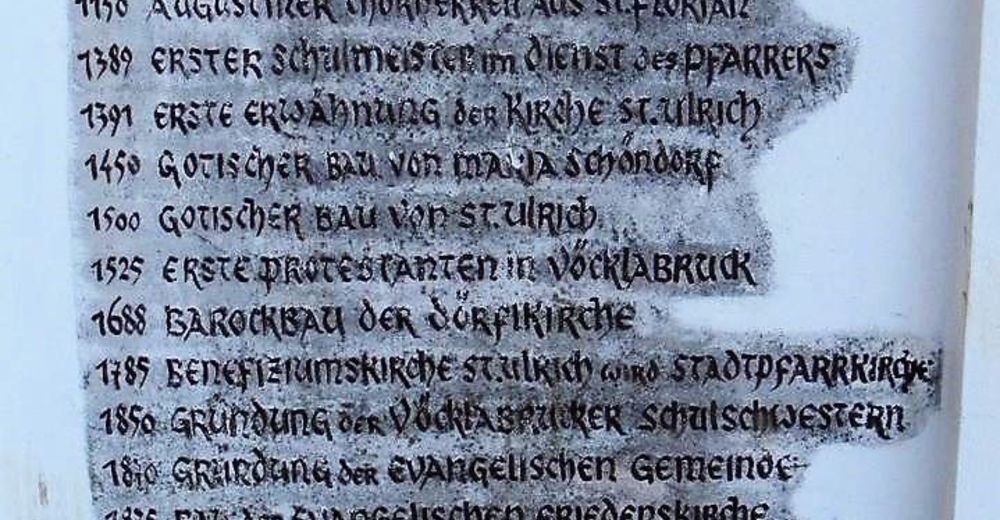 AUGUSTINER CHORHERREN AUS ST. FLORIAN
1389 ERSTER SCHULMEISTER im DIENST des PFARRERS
1391 ERSTE ERWÄHNUNG der KIRCHE ST. ULRICH
1450 GOTISCHER BAU VON MARIA SCHÖNDORF
1500 GOTISCHER BAU VON ST. ULRICH
1525 ERSTE PROTESTANTEN in VÖCKLABRUCK
1688 BAROCKBAU DER DÖRFLKIRCHE
1785 BENEFIZIUMSKIRCHE ST. ULRICH wird STADTPFARRKIRCHE
1850 GRÜNDUNG der VÖCKLABRUCKER SCHULSCHWESTERN
GRÜNDUNG der EVANGELISCHEN GEMEINDE
BAU der EVANGELISCHEN FRIEDENSKIRCHE